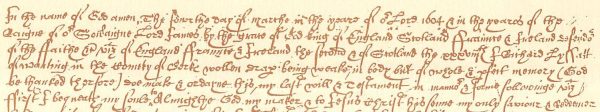 In the name of God amen, The fourthe day of marche in the yeare of oʳ Lord 1604 & in the yeares of the
Reigne of oʳ Soveraigne Lord James by the grace of God king of England Scotland ffraunce & Ireland defendoʳ
of the ffaithe &c viz of England ffraunce & Ireland the second & of Scotland the xxxviijᵗʰ I Richard
of in the Countie of woollen drap being weake in body but of whole & pfect memory (God
be thanked therfore) doe make & ordayne this my last will & Testament in manʳ & forme followinge viz
ffirst I bequeath my soule to Almightie God my maker & to Jesus Christ his sonne my only savioʳ & Redemer